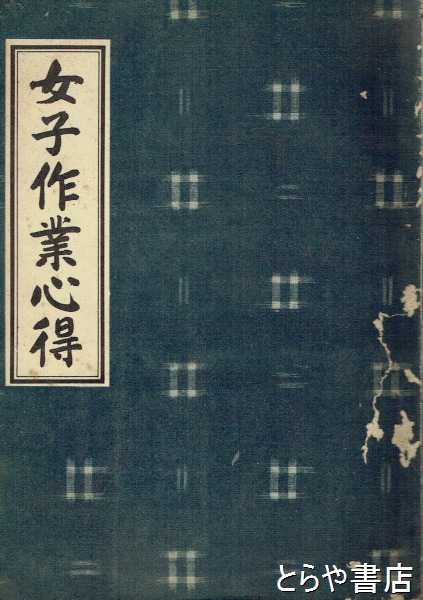 女子作業心得
とらや書店